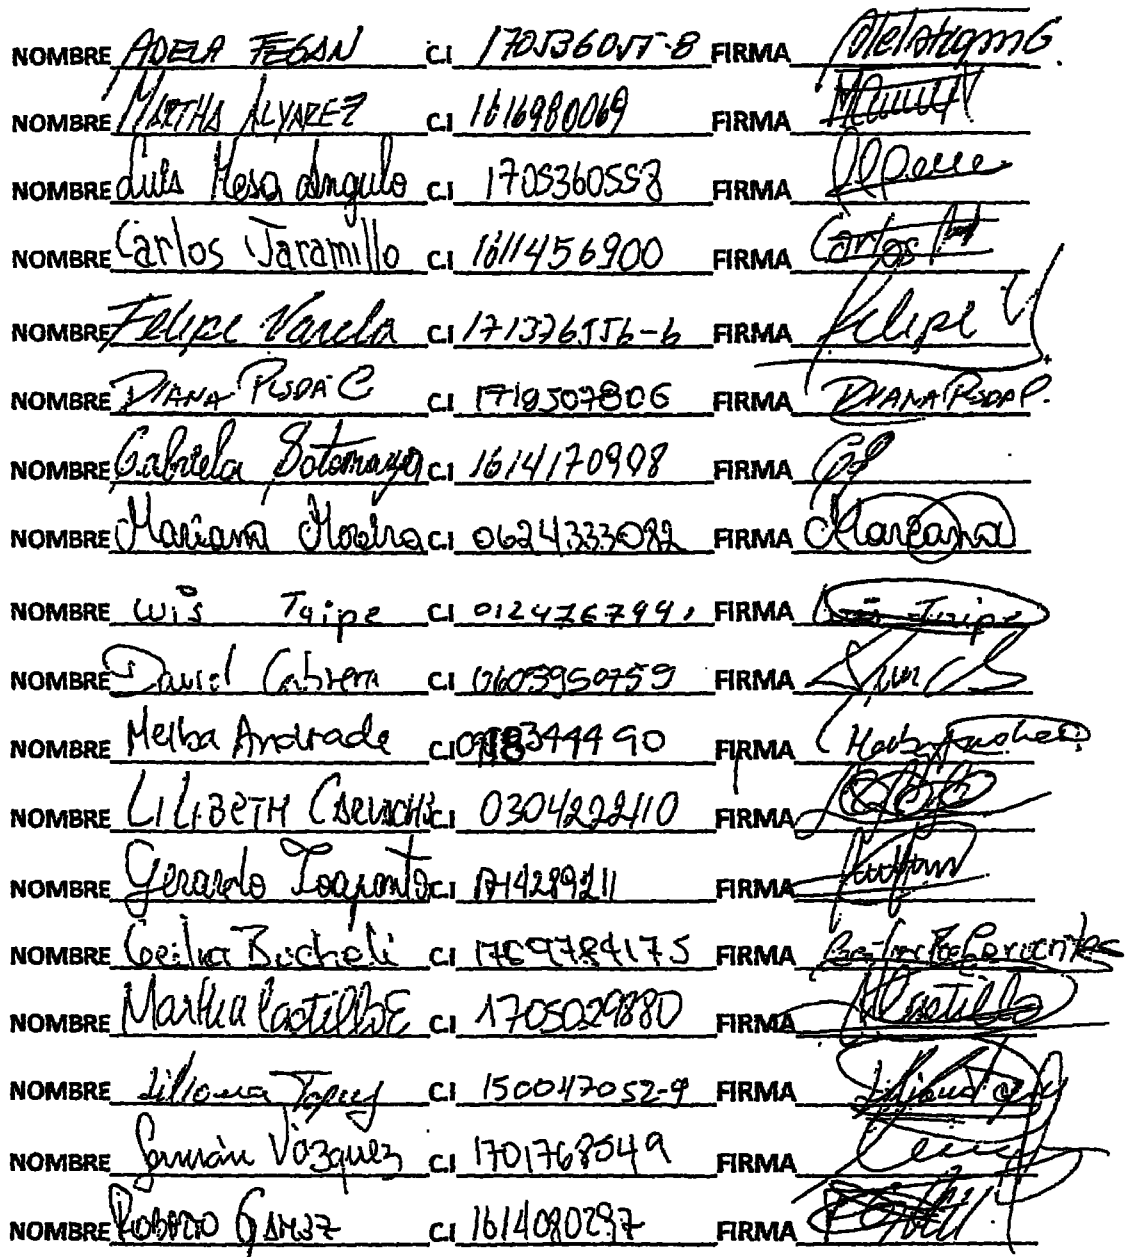 NOMBRE ADELA FEGAN C.I 170536055-8 FIRMA
NOMBRE MARTHA ALVAREZ C.I 1616980069 FIRMA
NOMBRE Luis Mesa Angulo C.I 1705360558 FIRMA
NOMBRE Carlos Jaramillo C.I 1611456900 FIRMA Carlos
NOMBRE Felipe Varela C.I 171376556-6 FIRMA Felipe V
NOMBRE DIANA C C.I 1719507806 FIRMA DIANA
NOMBRE Gabriela Sotomayor C.I 1614170908 FIRMA GS
NOMBRE Mariana C.I 0624333082 FIRMA Mariana
NOMBRE Luis Taipe C.I 012476799 FIRMA Luis Taipe
NOMBRE David Cabrera C.I 0603950759 FIRMA
NOMBRE Melba Andrade C.I 0918344490 FIRMA
NOMBRE LILIBETH C.I 0304222110 FIRMA
NOMBRE Gerardo Toapanta C.I 1714289211 FIRMA
NOMBRE Cecilia Bucheli C.I 1709784175 FIRMA
NOMBRE Martha Castillo E C.I 1705029880 FIRMA MCastillo
NOMBRE Liliana Tapuy C.I 150047052-9 FIRMA Liliana Tapuy
NOMBRE Germán Vázquez C.I 1701768549 FIRMA
NOMBRE ROBERTO GAMEZ C.I 1614080297 FIRMA